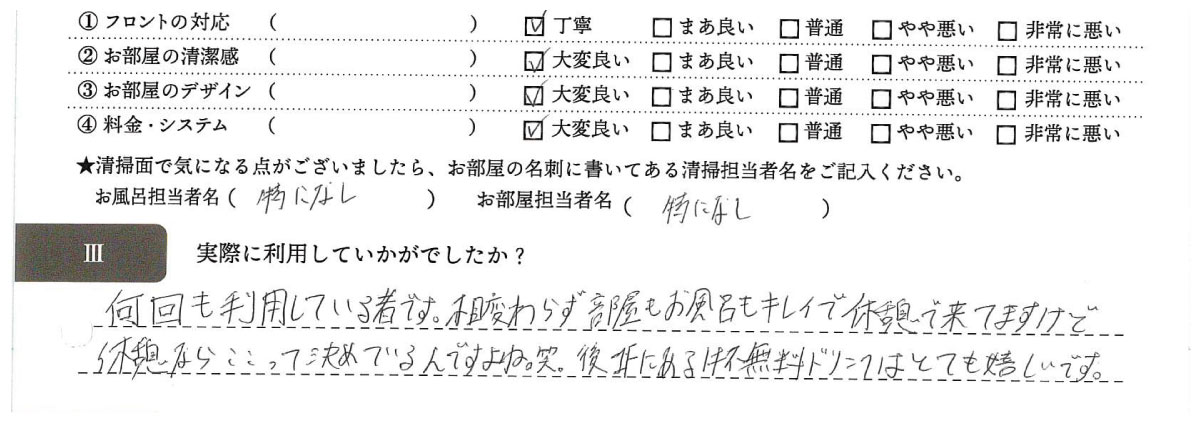 ① フロントの対応 ( ) ☑ 丁寧 □ まあ良い □ 普通 □ やや悪い □ 非常に悪い
② お部屋の清潔感 ( ) ☑ 大変良い □ まあ良い □ 普通 □ やや悪い □ 非常に悪い
③ お部屋のデザイン ( ) ☑ 大変良い □ まあ良い □ 普通 □ やや悪い □ 非常に悪い
④ 料金・システム ( ) ☑ 大変良い □ まあ良い □ 普通 □ やや悪い □ 非常に悪い
★清掃面で気になる点がございましたら、お部屋の名刺に書いてある清掃担当者名をご記入ください。
お風呂担当者名 ( 特になし ) お部屋担当者名 ( 特になし )
Ⅲ 実際に利用していかがでしたか？
何回も利用している者です。相変わらず部屋もお風呂もキレイで休憩で来てますけど
休憩ならここって決めているんですよね。笑。後 にある 無料ドリンクはとても嬉しいです。